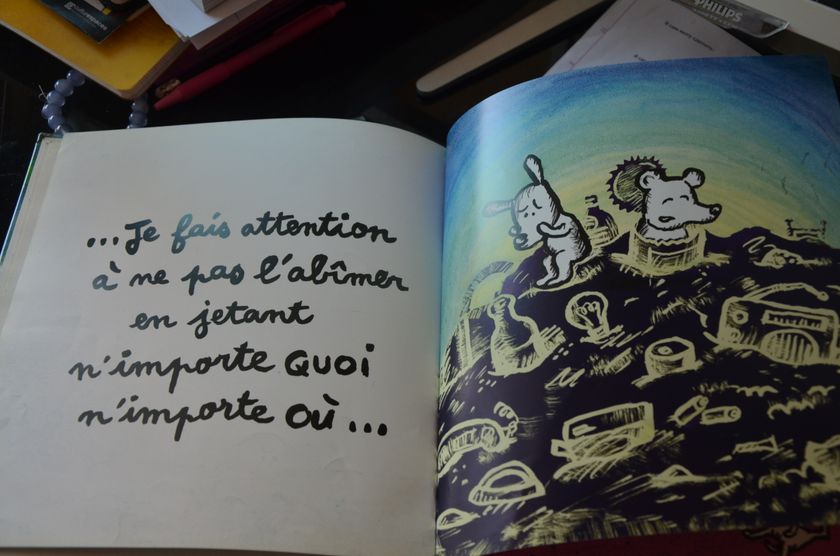 PHILIPS
...Je fais attention
à ne pas l'abîmer
en jetant
n'importe QUOI
n'importe OÙ...